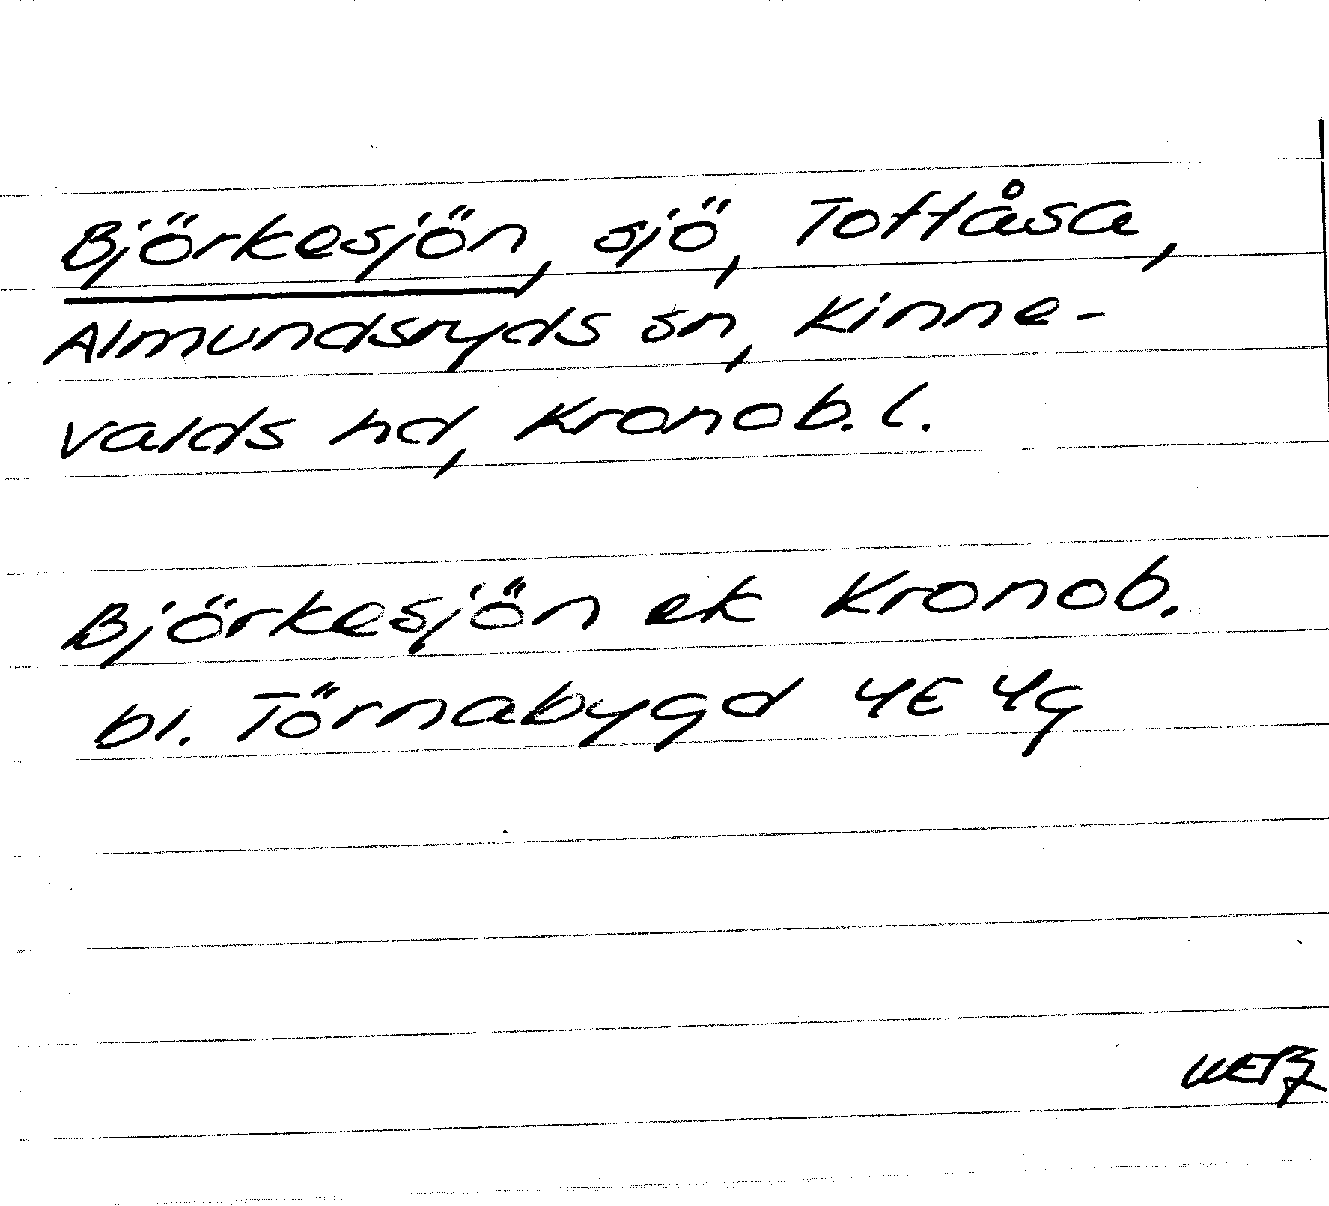 Björkesjön, sjö, Toftåsa,
Almundsryds sn, Kinne-
valds hd, Kronob. l.
Björkesjön ek Kronob.
bl. Törnabygd 4E 4g